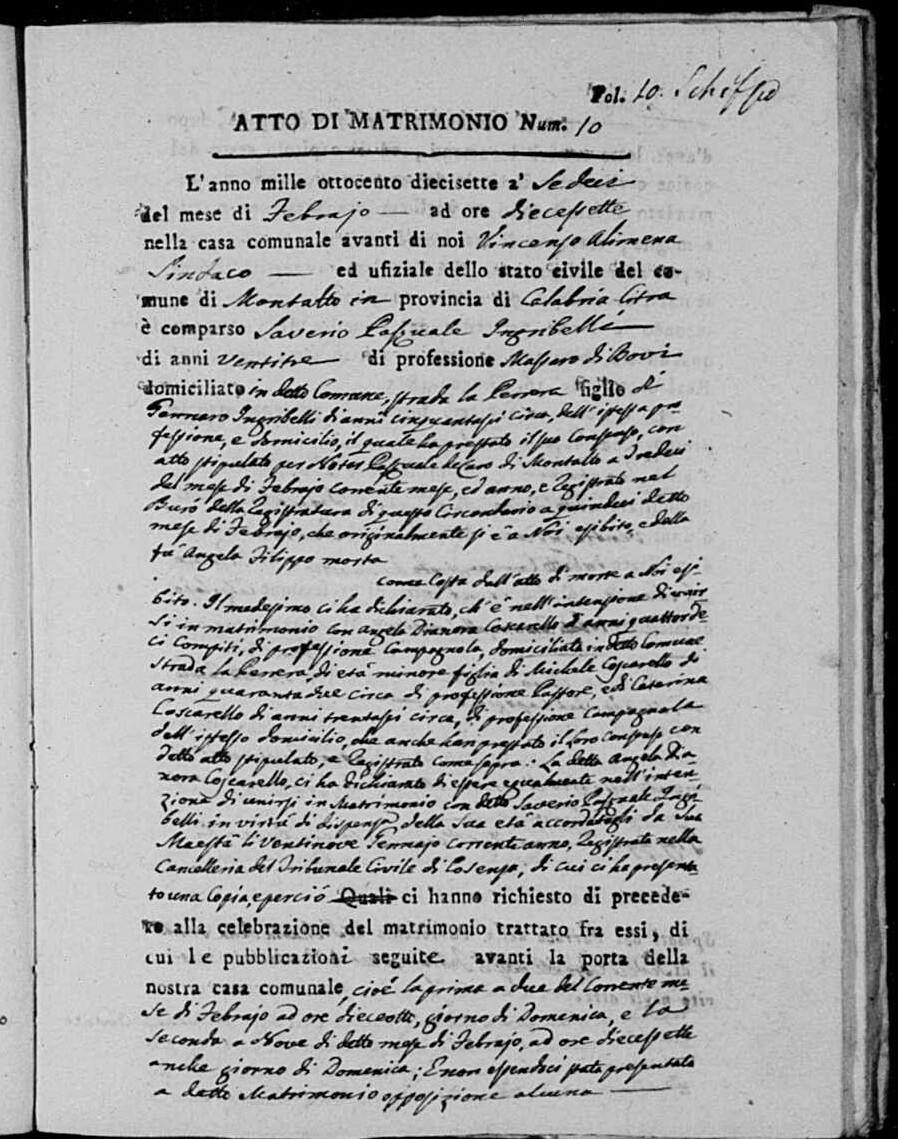 Fol. 10. Schiffo
ATTO DI MATRIMONIO Num. 10
L'anno mille ottocento diecisette a' Sedeci
del mese di Febrajo — ad ore diecessette
nella casa comunale avanti di noi Vincenzo Alimena
Sindaco — ed ufiziale dello stato civile del co-
mune di Montalto in provincia di Calabria Citra
è comparso Saverio Pasquale Ingribelli
di anni Ventitre di professione Massaro di Bovi
domiciliato in detto Comune, strada la Perrera figlio di
Gennaro Ingribelli di anni cinquantasei circa, dell'istessa pro-
fessione, e domicilio, il quale ha prestato il suo consenso, con
atto stipulato per Notar Pasquale de Caro di Montalto a tredeci
del mese di Febrajo corrente mese, ed anno, e Registrato nel
Burò della Registratura di questo Circondario a quindeci detto
mese di Febrajo, che originalmente si è a Noi esibito, e della
fù Angela Filippo morta
come Costa dall'atto di morte a Noi esi-
bito. Il medesimo ci ha dichiarato, ch'è nell'intenzione di unir-
si in matrimonio con Angela Dianora Coscarello d'anni quattorde-
ci Compiti, di professione Campagnola, domiciliata in detto Comune
strada la Perrera, di età minore figlia di Michele Coscarello di
anni quaranta due circa di professione Pastore, e di Caterina
Coscarello di anni trentasei circa, di professione Campagnola
dell'istesso domicilio, che anche han prestato il loro consenso con
detto atto stipulato, e Registrato come sopra: La detta Angela Dia-
nora Coscarello, ci ha dichiarato di essere egualmente nell'inten-
zione di unirsi in Matrimonio con detto Saverio Pasquale Ingri-
belli in virtù di dispensa della Sua età accordatagli da Sua
Maestà li Ventinove Gennajo corrente anno, Registrata nella
Cancelleria del Tribunale Civile di Cosenza, di cui ci ha presenta-
to una Copia, e perciò Quali ci hanno richiesto di precede-
re alla celebrazione del matrimonio trattato fra essi, di
cui le pubblicazioni seguite avanti la porta della
nostra casa comunale, cioè la prima a due del Corrente me-
se di Febrajo ad ore dieceotto, giorno di Domenica, e la
seconda a Nove di detto mese di Febrajo, ad ore diecessette
anche giorno di Domenica; E non essendoci stata presentata
a detto Matrimonio opposizione alcuna —